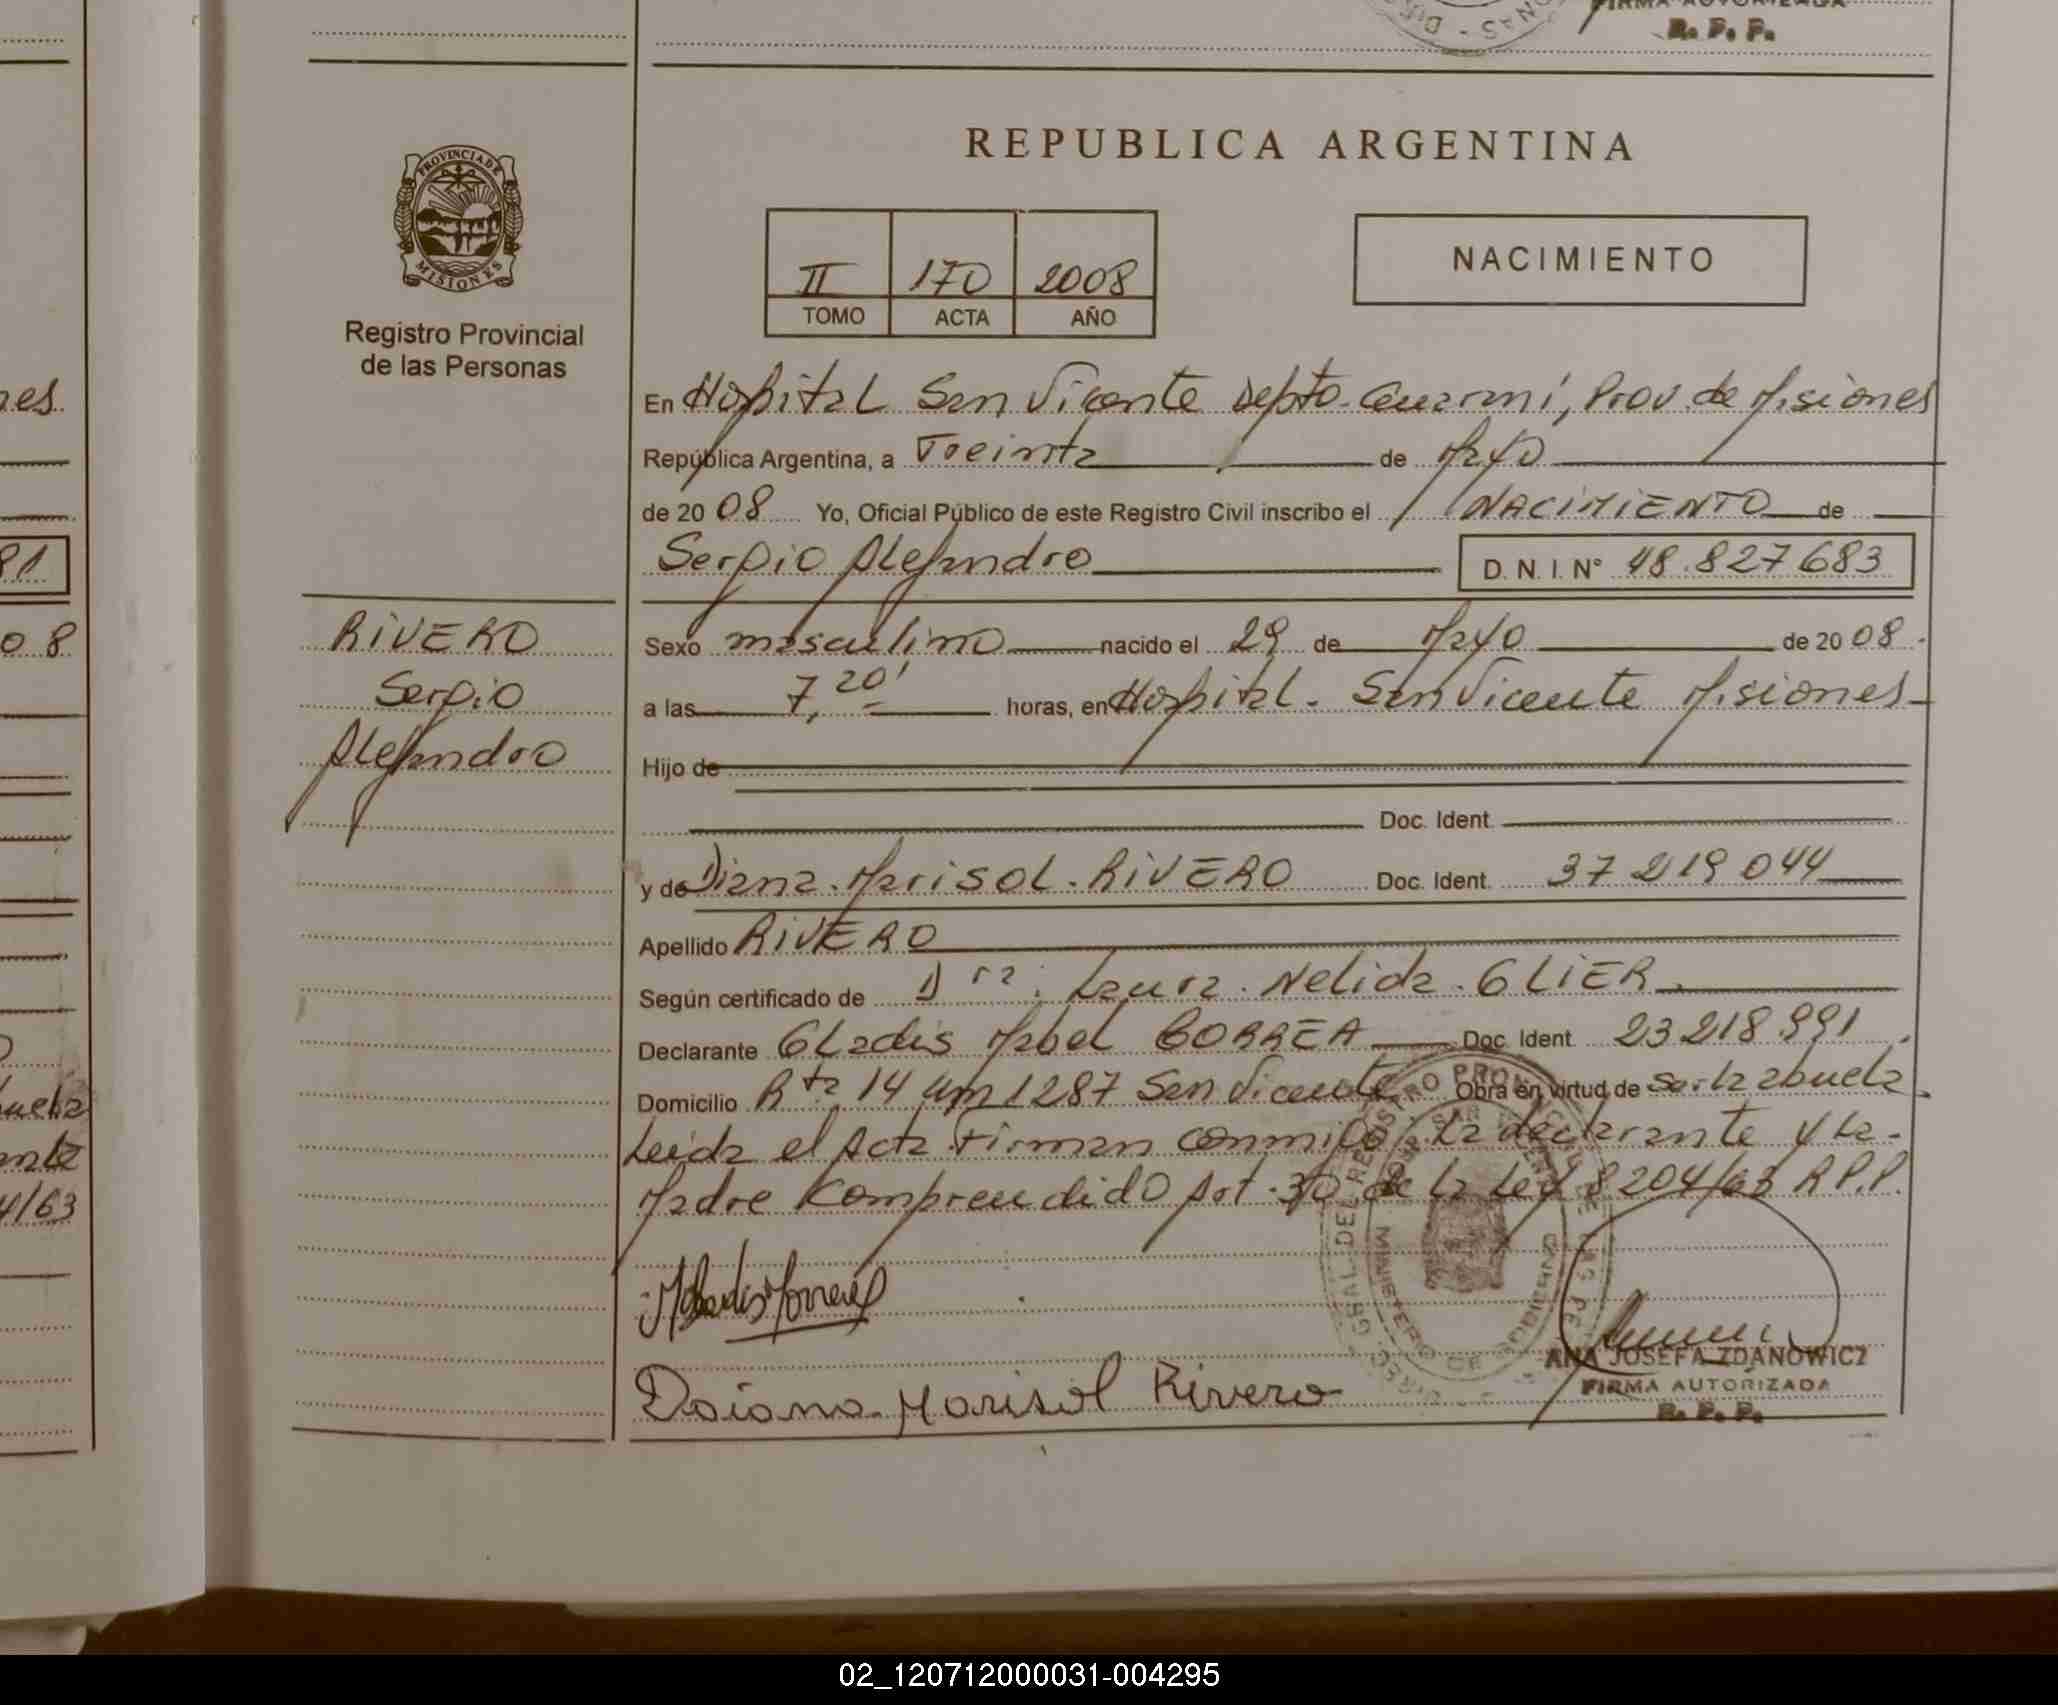 FIRMA AUTORIZADA
R. P. P.
PROVINCIA DE
MISIONES
Registro Provincial
de las Personas
REPUBLICA ARGENTINA
II 170 2008
TOMO ACTA AÑO
NACIMIENTO
En Hospital San Vicente Depto. Guaraní, Prov. de Misiones
República Argentina, a Treinta de Mayo
de 2008 Yo, Oficial Público de este Registro Civil inscribo el NACIMIENTO de
Sergio Alejandro D. N. I. N° 48.827683
RIVERO
Sergio
Alejandro
Sexo masculino nacido el 29 de Mayo de 2008.
a las 7,20' horas, en Hospital - San Vicente Misiones
Hijo de
Doc. Ident.
y de Diana. Marisol. RIVERO Doc. Ident. 37 219 044
Apellido RIVERO
Según certificado de Dra: Laura. Nelida. GLIER
Declarante Gladis Mabel CORREA Doc. Ident. 23 218.991.
Domicilio Rta 14 Km 1287 San Vicente Obra en virtud de ser la abuela
Leida el Acta Firman conmigo la declarante y la-
Madre Comprendido Art. 30 de la Ley 8204/63 R.P.P.
Daiana Marisol Rivero
ANA JOSEFA ZDANOWICZ
FIRMA AUTORIZADA
R. P. P.
02_120712000031-004295